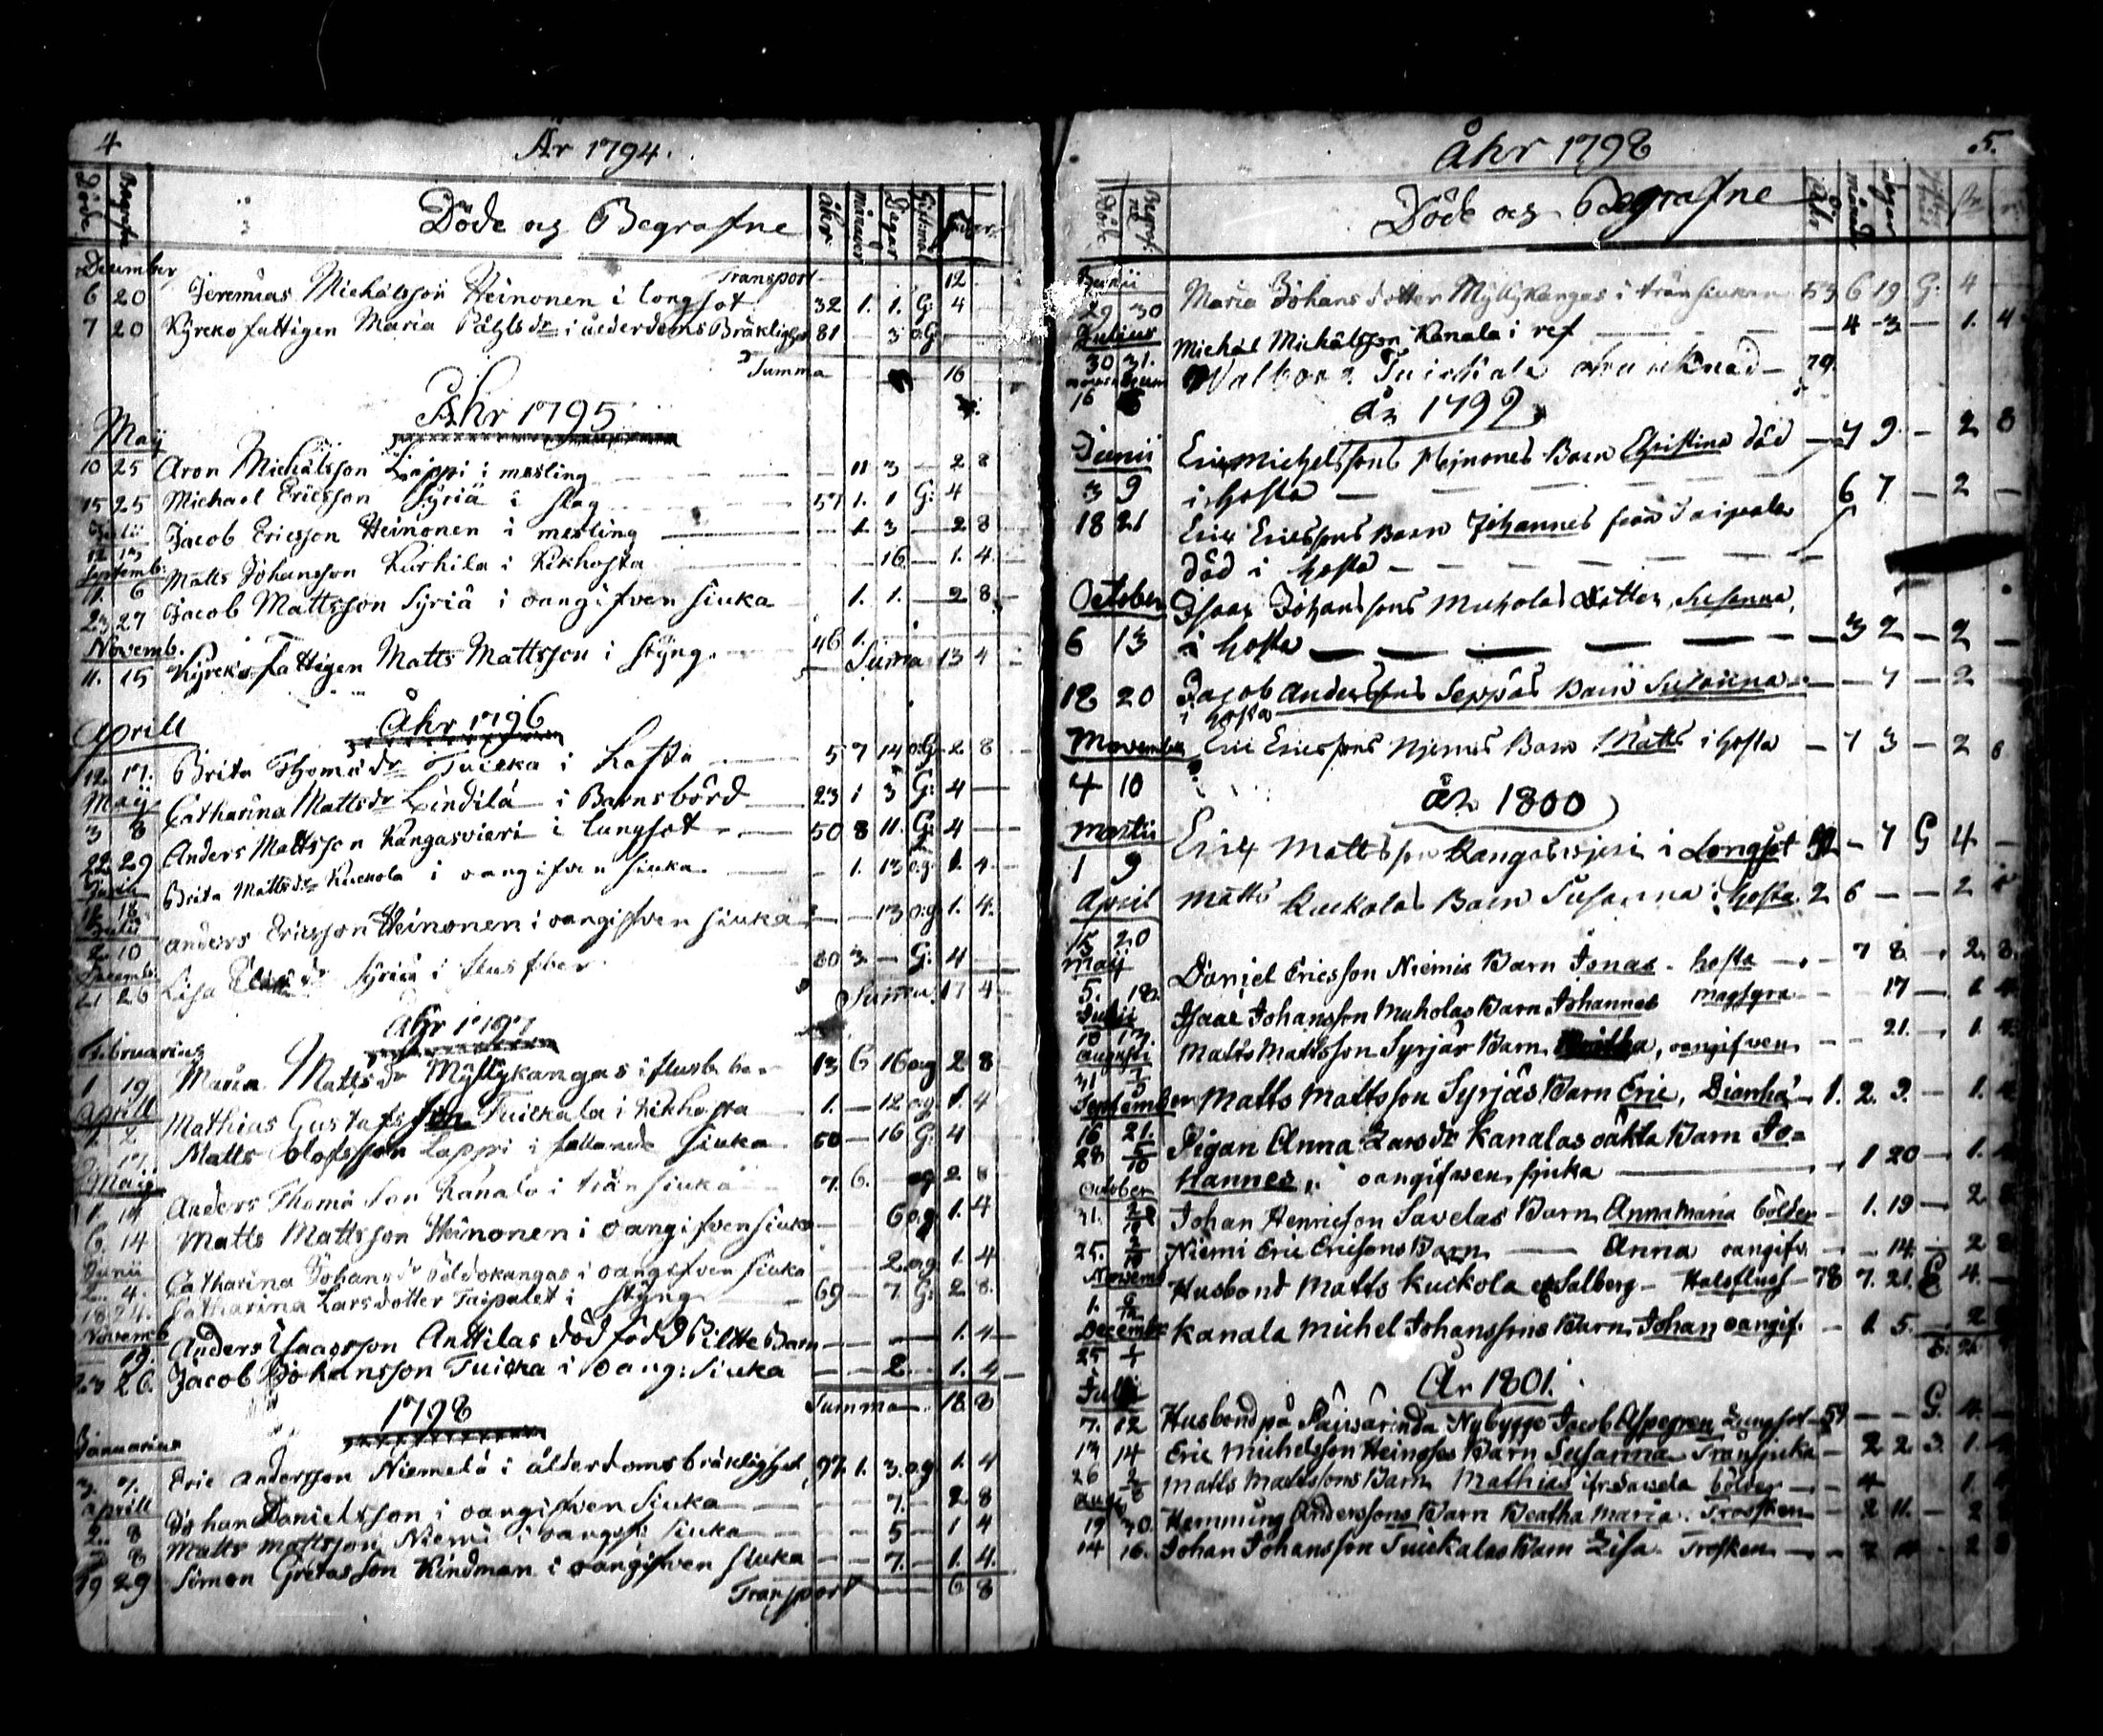 4
År 1794.
Döde Begrafne Döde og Begrafne Åhr månader Dagar Giftmål
December Transport 12
6 20 Jeremias Michälsson Heinonen i longsot 32 1. 1. G: 4
7 20 Kyrckofattigen Maria Påhlsdr i ålderdoms Bräklighet 81 3 o:G
Summa 16
Åhr 1795
Maÿ
10 25 Aron Michälsson Lappi i mesling 11 3 2 8
15 25 Michael Ericsson Syriä i slag 57 1. 1 G: 4
Julii
12 13 Jacob Ericsson Heinonen i mesling 1. 3 2 8
Septemb:
11. 6 Matts Johansson Kurhila i Kikhosta 16 1. 4.
23 27 Jacob Mattsson Syriä i oangifven siuka 1. 1. 2 8
Novemb.
11. 15 Kyrcko fattigen Matts Mattsson i styng. 46 1.
Summa 13 4
Åhr 1796
Aprill
12. 17. Brita Thomædr Tuicka i Hosta 5 7 14 o:G 2 8
Maÿ
3 8 Catharina Mattsdr Lindilä i Barnsbörd 23 1 3 G: 4
22 29 Anders Mattsson Kangasvieri i lungsot 50 8 11. G: 4
Junii
Brita Mattsdr Kuckola i oangifven siuka 1. 13 o:g. 1. 4.
Julii
2. 10 Anders Ericsson Heinonen i oangifven siuka 13 o:g. 1. 4.
Decemb:
21 26 Lisa Syriä i flussfeber 80 3 G: 4
Summa. 17 4
Åhr 1797
Februarius
1 19 Maria Mattsdr Myllykangas i flussb 13 6 16 og 2 8
Aprill
1. 2 Mathias Gustafsson Tuickala i Kikhosta 1. 12 og. 1. 4
17. Matts Olofsson Lappi i fallande siuka 50 16 G: 4
Maÿ
1. 14 Anders Thomæ Son Kanala i trånsiuka 7. 6. og 2 8
6. 14 Matts Mattsson Heinonen i oangifven siuka 6 o.g. 1. 4
Junii
2. 4. Catharina Johansdr i oangifven siuka 2. o.g. 1. 4
18 24. Catharina Larsdotter Taipalet i styng 69 7. G: 2 8.
Novemb
19. Anders Isaacsson Anttilas dödfödd Piltte Barn 1. 4
23 26. Jacob Johansson Tuicka i oang: siuka 2 1. 4
Summa 18 8
1798
Januarius
3. 7. Eric Andersson Niemelä i ålderdomsbräklighet 97 1. 3. og 1. 4
Aprill
2. 8 Johan Danielsson i oangifven siuka 7. 2 8
8 Matts Mattsson Niemi i oangif: siuka 5 1 4
19 29 Simon Gretasson Kindman i oangifven siuka 7. 1. 4.
Transport 6 8
Åhr 1798
5.
Döde Begrafne Döde og Begrafne Åhr månader Dagar
Junii
29 30 Maria Johansdotter Myllykangas i trånsiukan 53 6 19 G. 4
Julius
30 31. Michel Michälsson Kanala i ref 4 3 1. 4
16 Walborg Tuickala 79.
År 1799
Junii
3 9 Eric Michelssons Hejnones Barn Christina död 7 9. 2 8
i hosta
18 21 Eric Ericssons Barn Johannes från Taipale 6 7 2
död i hosta
October
6 13 Isaac Johanssons Muholas Dotter Susanna, 3 2 2
i hosta
12 20 Jacob Anderssons Seppäs Barn Susanna 7 2
i hosta
November
4 10 Eric Ericssons Njemis Barn Matts i hosta 7 3 2 8
År 1800
Martii
1 9 Eric Mattsson Kangasvjeri i Longsot 7 G 4
April
15 20 Matts Kuckolas Barn Susanna i hosta. 2 6 2
Maÿ
5. 18. Daniel Ericsson Niemis Barn Jonas. hosta 7 8 2. 8.
Julii
10 13. Isaac Johansson Muholas Barn Johannes magsyra 17 1. 4.
Augusti
31 Matts Mattsson Syrjäs Barn, oangifven 21. 1. 4.
September
16 21. Matts Mattsson Syrjäs Barn Eric, Diarrhé 1. 2. 3. 1. 4
28 5/10 Pigan Anna Larsdr Kanalas oäkta Barn Jo=
hannes, i oangifven sjuka 1 20 1.
October
21. Johan Henricson Savelas Barn Anna Maria bölder 1. 19 2 8
25. Niemi Eric Ericsons Barn Anna oangifv. 14. 2 8
Novemb
1. Husbond Matts Kuckola Salberg Halsfluss 78 7. 21. G 4.
December
25 Kanala Michel Johanssons Barn Johan oangif. 1. 5. 2
År 1801.
Julii
7. 12 Husbond på Nybygge Jacob Aspegren Lungsot 59 G. 4.
13 14 Eric Michelsson Heinoses Barn Susanna Transjuka 2 2 3. 1. 4
26 Matts Mattsons Barn Mathias bölder 4 1.
Aug
19 30. Hemming Anderssons Barn Beatha Maria. Trosken 2 11. 2
14 16. Johan Johansson Tuickalas Barn Lisa Trosken 2 8